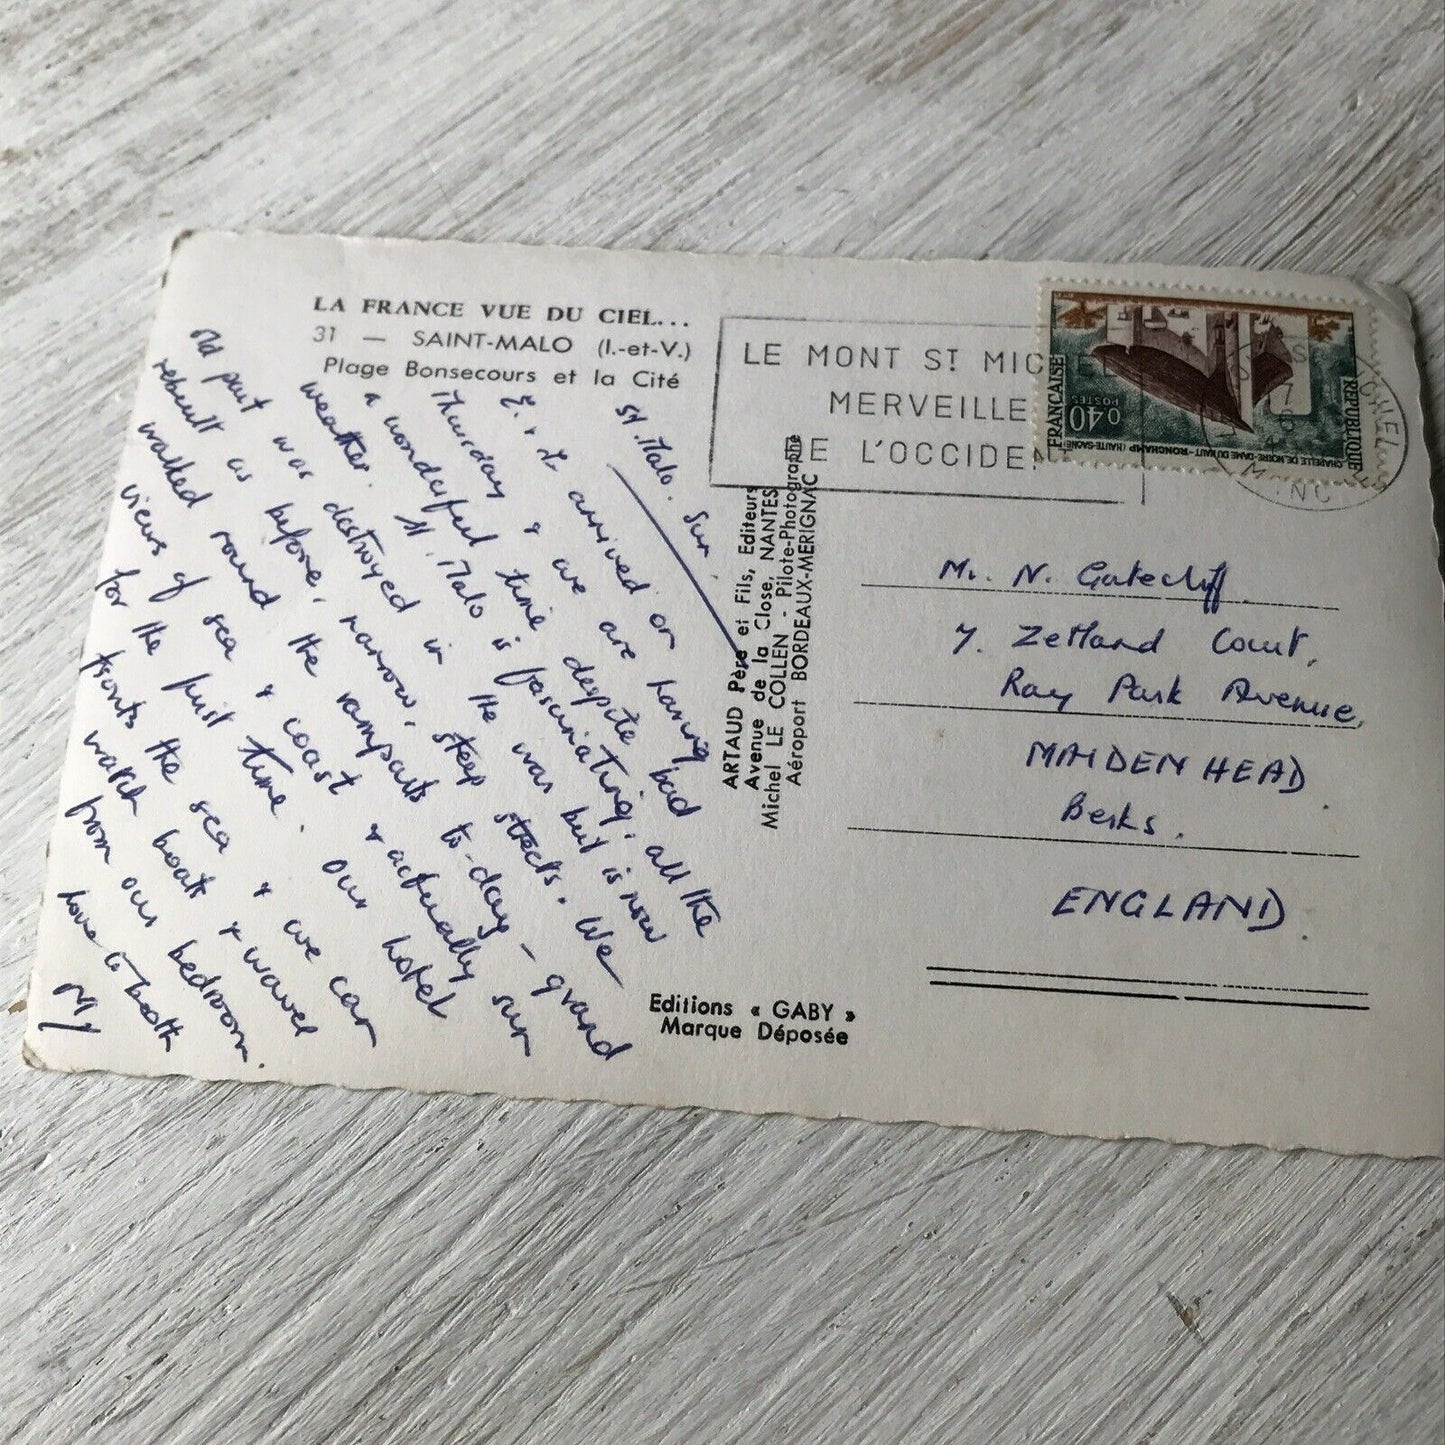 LA FRANCE VUE DU CIEL...
31 — SAINT-MALO (I.-et-V.)
Plage Bonsecours et la Cité
St. Malo. Sun.
E. & I arrived on
Thursday & we are having
a wonderful time despite bad
weather. St. Malo is fascinating, all the
old part was destroyed in the war but is now
rebuilt as before, narrow, steep streets. We
walked round the ramparts to-day – grand
views of sea & coast & actually sun
for the first time. Our hotel
fronts the sea & we can
watch boats & waves
from our bedroom.
Love to both
My
ARTAUD Père et Fils, Editeurs
Avenue de la Close, NANTES
Michel LE COLLEN - Pilote-Photographe
Aéroport BORDEAUX-MERIGNAC
Editions « GABY »
Marque Déposée
LE MONT ST MICHEL
MERVEILLE
DE L'OCCIDEN
REPUBLIQUE FRANÇAISE
0,40
POSTES
CHAPELLE DE NOTRE-DAME DU HAUT - RONCHAMP (HAUTE-SAÔNE)
Mr. N. Gatecliff.
7. Zetland Court,
Ray Park Avenue,
MAIDENHEAD.
Berks.
ENGLAND.